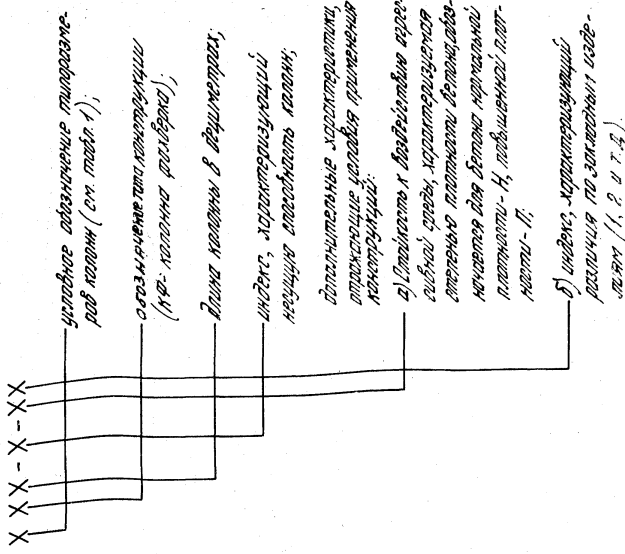 X X X - X - X X
условное обозначение типоразме-
ров колонн (см. табл. 1);
обозначение типа конструкции
(КФ- колонна фахверка);
длина колонны в дециметрах;
индекс, характеризующий
несущую способность колонн;
дополнительные характеристики,
отражающие условия применения
конструкций:
а) Стойкость к воздействию агрес-
сивной среды, характеризуемая
степенью плотности бетона, обоз-
начается для бетона нормальной
плотности - Н, повышенной плот-
ности - П;
б) индекс, характеризующий
различия по закладным изде-
лиям (1, 2 и т.д.)